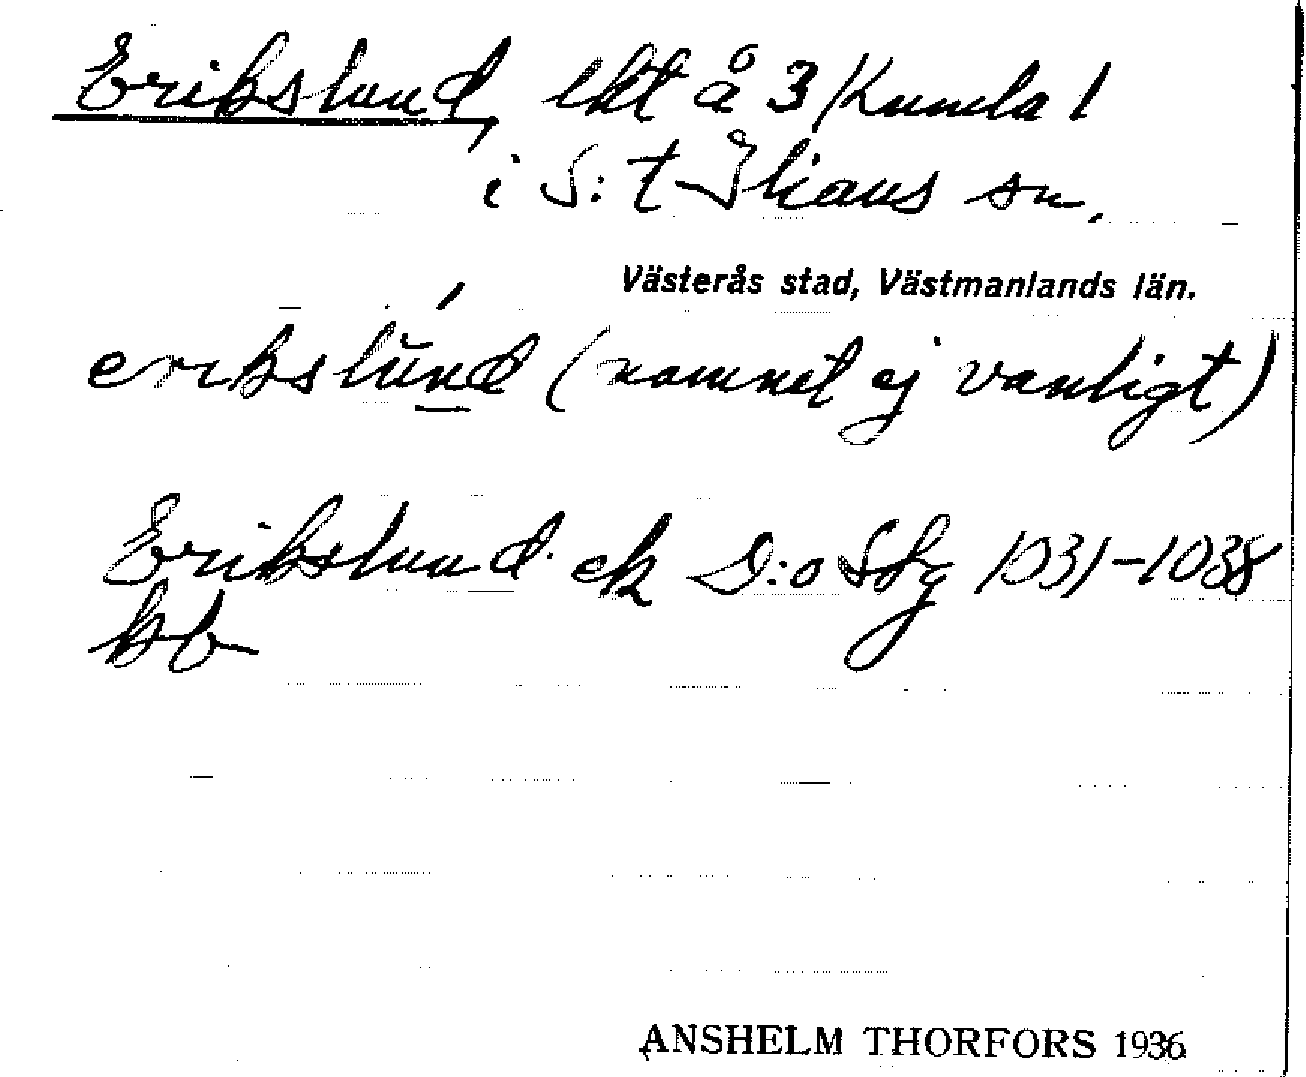 Erikslund, lht å 3/Kumla 1
i S:t Ilians sn.
Västerås stad, Västmanlands län.
erikslúnd (namnet ej vanligt)
Erikslund. ek D:o 1031-1038
kb
ANSHELM THORFORS 1936